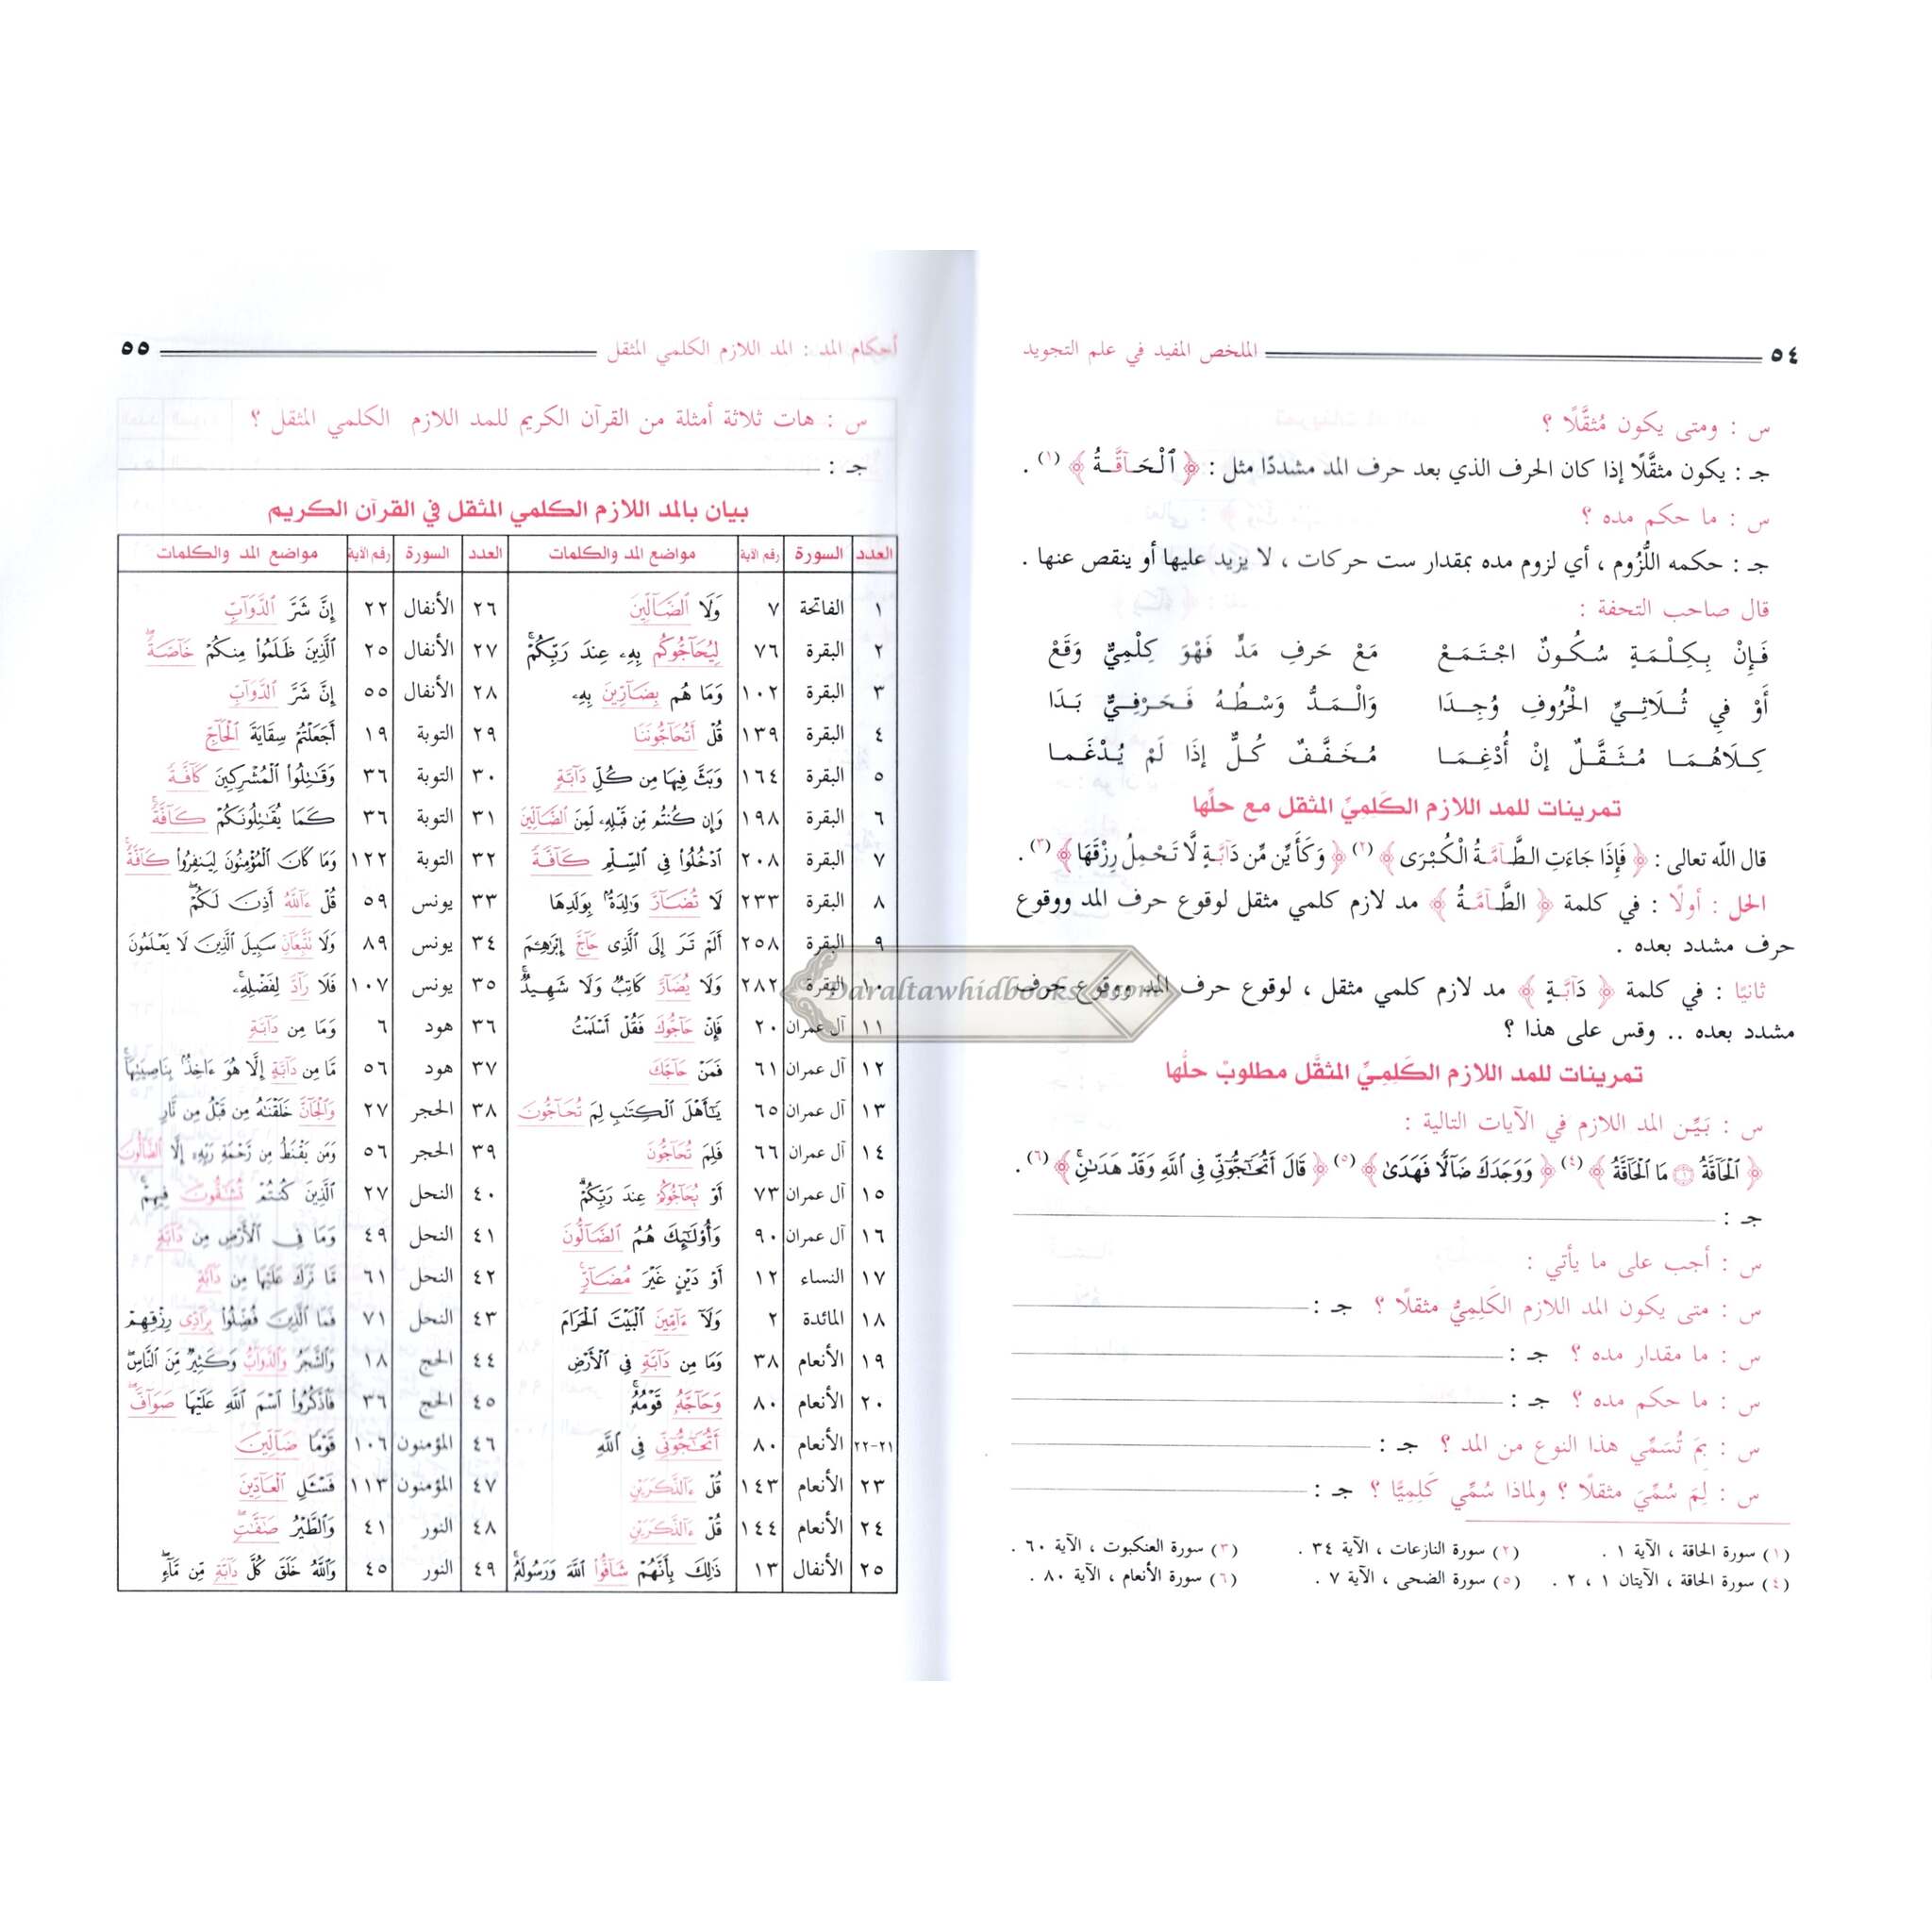 ٥٤ الملخص المفيد في علم التجويد
س : ومتى يكون مُثقَّلًا ؟
جـ : يكون مثقَّلًا إذا كان الحرف الذي بعد حرف المد مشددًا مثل : ﴿ ٱلْحَآقَّةُ ﴾ (١) .
س : ما حكم مده ؟
جـ : حكمه اللُّزُوم ، أي لزوم مده بمقدار ست حركات ، لا يزيد عليها أو ينقص عنها .
قال صاحب التحفة :
فَإِنْ بِكِلْمَةٍ سُكُونٌ اجْتَمَعْ مَعْ حَرفِ مَدٍّ فَهْوَ كِلْمِيٌّ وَقَعْ
أَوْ فِي ثُلَاثِيِّ الْحُرُوفِ وُجِدَا وَالْمَدُّ وَسْطُهُ فَحَرْفِيٌّ بَدَا
كِلَاهُمَا مُثَقَّلٌ إنْ أُدْغِمَا مُخَفَّفٌ كُلٌّ إذَا لَمْ يُدْغَما
تمرينات للمد اللازم الكَلمِيِّ المثقل مع حلّها
قال الله تعالى : ﴿ فَإِذَا جَاءَتِ الطَّآمَّةُ الْكُبْرَى ﴾ (٢) ﴿ وَكَأَيِّن مِّن دَآبَّةٍ لَّا تَحْمِلُ رِزْقَهَا ﴾ (٣) .
الحل : أولًا : في كلمة ﴿ الطَّآمَّةُ ﴾ مد لازم كلمي مثقل لوقوع حرف المد ووقوع
حرف مشدد بعده .
ثانيًا : في كلمة ﴿ دَآبَّةٍ ﴾ مد لازم كلمي مثقل ، لوقوع حرف المد ووقوع حرف
مشدد بعده .. وقس على هذا ؟
تمرينات للمد اللازم الكَلمِيِّ المثقَّل مطلوبٌ حلُّها
س : بَيِّن المد اللازم في الآيات التالية :
﴿ ٱلْحَآقَّةُ ١ مَا ٱلْحَآقَّةُ ﴾ (٤) ﴿ وَوَجَدَكَ ضَآلًّا فَهَدَىٰ ﴾ (٥) ﴿ قَالَ أَتُحَٰٓجُّوٓنِّى فِى ٱللَّهِ وَقَدْ هَدَىٰنِ ﴾ (٦) .
جـ :
س : أجب على ما يأتي :
س : متى يكون المد اللازم الكَلِمِيُّ مثقلًا ؟ جـ :
س : ما مقدار مده ؟ جـ :
س : ما حكم مده ؟ جـ :
س : بمَ تُسَمِّي هذا النوع من المد ؟ جـ :
س : لِمَ سُمِّيَ مثقلًا ؟ ولماذا سُمِّي كَلِمِيًّا ؟ جـ :
(١) سورة الحاقة ، الآية ١ . (٢) سورة النازعات ، الآية ٣٤ . (٣) سورة العنكبوت ، الآية ٦٠ .
(٤) سورة الحاقة ، الآيتان ١ ، ٢ . (٥) سورة الضحى ، الآية ٧ . (٦) سورة الأنعام ، الآية ٨٠ .
أحكام المد : المد اللازم الكلمي المثقل ٥٥
س : هات ثلاثة أمثلة من القرآن الكريم للمد اللازم الكلمي المثقل ؟
جـ :
بيان بالمد اللازم الكلمي المثقل في القرآن الكريم
العدد السورة رقم الآية مواضع المد والكلمات العدد السورة رقم الآية مواضع المد والكلمات
١ الفاتحة ٧ وَلَا ٱلضَّآلِّينَ ٢٦ الأنفال ٢٢ إِنَّ شَرَّ ٱلدَّوَآبِّ
٢ البقرة ٧٦ لِيُحَآجُّوكُم بِهِۦ عِندَ رَبِّكُمْ ۚ ٢٧ الأنفال ٢٥ ٱلَّذِينَ ظَلَمُوا۟ مِنكُمْ خَآصَّةً ۖ
٣ البقرة ١٠٢ وَمَا هُم بِضَآرِّينَ بِهِۦ ٢٨ الأنفال ٥٥ إِنَّ شَرَّ ٱلدَّوَآبِّ
٤ البقرة ١٣٩ قُلْ أَتُحَآجُّونَنَا ٢٩ التوبة ١٩ أَجَعَلْتُمْ سِقَايَةَ ٱلْحَآجِّ
٥ البقرة ١٦٤ وَبَثَّ فِيهَا مِن كُلِّ دَآبَّةٍ ٣٠ التوبة ٣٦ وَقَٰتِلُوا۟ ٱلْمُشْرِكِينَ كَآفَّةً
٦ البقرة ١٩٨ وَإِن كُنتُم مِّن قَبْلِهِۦ لَمِنَ ٱلضَّآلِّينَ ٣١ التوبة ٣٦ كَمَا يُقَٰتِلُونَكُمْ كَآفَّةً ۚ
٧ البقرة ٢٠٨ ٱدْخُلُوا۟ فِى ٱلسِّلْمِ كَآفَّةً ٣٢ التوبة ١٢٢ وَمَا كَانَ ٱلْمُؤْمِنُونَ لِيَنفِرُوا۟ كَآفَّةً ۚ
٨ البقرة ٢٣٣ لَا تُضَآرَّ وَٰلِدَةٌۢ بِوَلَدِهَا ٣٣ يونس ٥٩ قُلْ ءَآللَّهُ أَذِنَ لَكُمْ ۖ
٩ البقرة ٢٥٨ أَلَمْ تَرَ إِلَى ٱلَّذِى حَآجَّ إِبْرَٰهِـۧمَ ٣٤ يونس ٨٩ وَلَا تَتَّبِعَآنِّ سَبِيلَ ٱلَّذِينَ لَا يَعْلَمُونَ
١٠ البقرة ٢٨٢ وَلَا يُضَآرَّ كَاتِبٌ وَلَا شَهِيدٌ ۚ ٣٥ يونس ١٠٧ فَلَا رَآدَّ لِفَضْلِهِۦ ۚ
١١ آل عمران ٢٠ فَإِنْ حَآجُّوكَ فَقُلْ أَسْلَمْتُ ٣٦ هود ٦ وَمَا مِن دَآبَّةٍ
١٢ آل عمران ٦١ فَمَنْ حَآجَّكَ ٣٧ هود ٥٦ مَّا مِن دَآبَّةٍ إِلَّا هُوَ ءَاخِذٌۢ بِنَاصِيَتِهَآ ۚ
١٣ آل عمران ٦٥ يَٰٓأَهْلَ ٱلْكِتَٰبِ لِمَ تُحَآجُّونَ ٣٨ الحجر ٢٧ وَٱلْجَآنَّ خَلَقْنَٰهُ مِن قَبْلُ مِن نَّارِ
١٤ آل عمران ٦٦ فَلِمَ تُحَآجُّونَ ٣٩ الحجر ٥٦ وَمَن يَقْنَطُ مِن رَّحْمَةِ رَبِّهِۦٓ إِلَّا ٱلضَّآلُّونَ
١٥ آل عمران ٧٣ أَوْ يُحَآجُّوكُمْ عِندَ رَبِّكُمْ ۗ ٤٠ النحل ٢٧ ٱلَّذِينَ كُنتُمْ تُشَٰٓقُّونَ فِيهِمْ ۚ
١٦ آل عمران ٩٠ وَأُو۟لَٰٓئِكَ هُمُ ٱلضَّآلُّونَ ٤١ النحل ٤٩ وَمَا فِى ٱلْأَرْضِ مِن دَآبَّةٍ
١٧ النساء ١٢ أَوْ دَيْنٍ غَيْرَ مُضَآرٍّ ۚ ٤٢ النحل ٦١ مَّا تَرَكَ عَلَيْهَا مِن دَآبَّةٍ
١٨ المائدة ٢ وَلَآ ءَآمِّينَ ٱلْبَيْتَ ٱلْحَرَامَ ٤٣ النحل ٧١ فَمَا ٱلَّذِينَ فُضِّلُوا۟ بِرَآدِّى رِزْقِهِمْ
١٩ الأنعام ٣٨ وَمَا مِن دَآبَّةٍ فِى ٱلْأَرْضِ ٤٤ الحج ١٨ وَٱلشَّجَرُ وَٱلدَّوَآبُّ وَكَثِيرٌ مِّنَ ٱلنَّاسِ ۖ
٢٠ الأنعام ٨٠ وَحَآجَّهُۥ قَوْمُهُۥ ۚ ٤٥ الحج ٣٦ فَٱذْكُرُوا۟ ٱسْمَ ٱللَّهِ عَلَيْهَا صَوَآفَّ ۖ
٢١-٢٢ الأنعام ٨٠ أَتُحَٰٓجُّوٓنِّى فِى ٱللَّهِ ٤٦ المؤمنون ١٠٦ قَوْمًا ضَآلِّينَ
٢٣ الأنعام ١٤٣ قُلْ ءَآلذَّكَرَيْنِ ٤٧ المؤمنون ١١٣ فَسْـَٔلِ ٱلْعَآدِّينَ
٢٤ الأنعام ١٤٤ قُلْ ءَآلذَّكَرَيْنِ ٤٨ النور ٤١ وَٱلطَّيْرُ صَٰٓفَّٰتٍ ۖ
٢٥ الأنفال ١٣ ذَٰلِكَ بِأَنَّهُمْ شَآقُّوا۟ ٱللَّهَ وَرَسُولَهُۥ ۚ ٤٩ النور ٤٥ وَٱللَّهُ خَلَقَ كُلَّ دَآبَّةٍ مِّن مَّآءٍ ۖ
Daraltawhidbooks.com